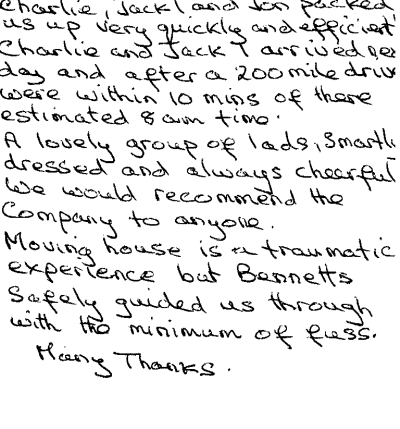 Charlie, Jack 1 and Jon packed
us up very quickly and efficient
Charlie and Jack 1 arrived nex
day and after a 200 mile driv
were within 10 mins of there
estimated 8am time.
A lovely group of lads, Smartl
dressed and always cheerful
We would recommend the
Company to anyone.
Moving house is a traumatic
experience but Bennetts
Safely guided us through
with the minimum of fuss.
Many Thanks.